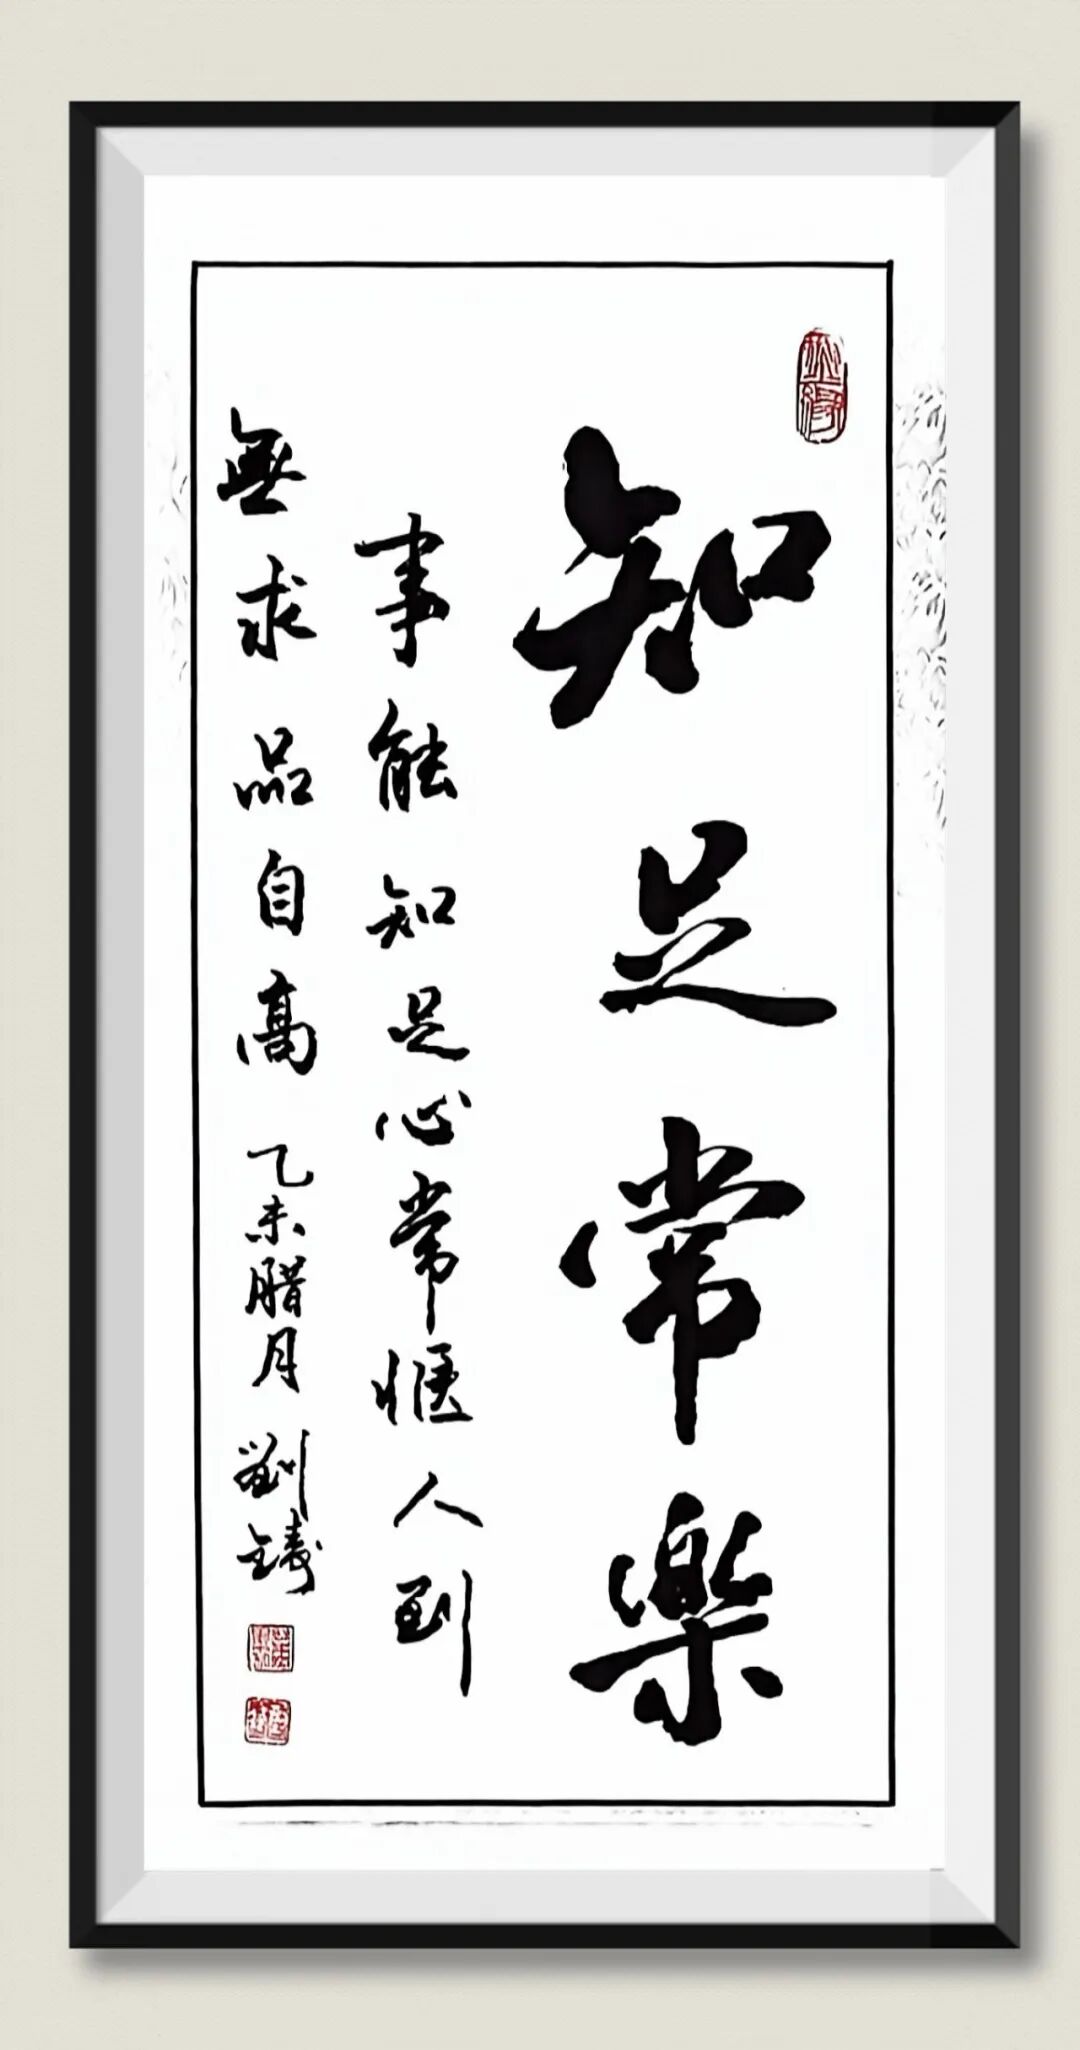 知足常樂
事能知足心常惬人到
無求品自高 乙未腊月 劉鑄